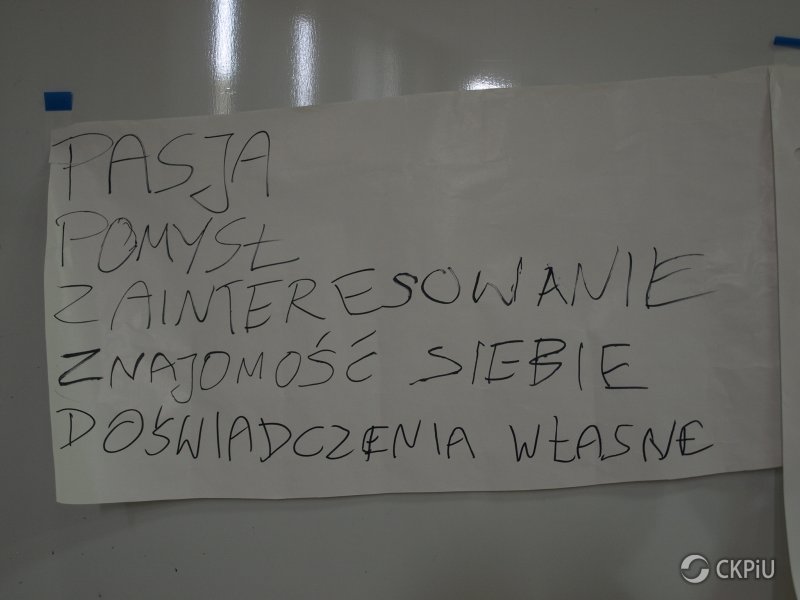 PASJA
POMYSŁ
ZAINTERESOWANIE
ZNAJOMOŚĆ SIEBIE
DOŚWIADCZENIA WŁASNE
CKPiU